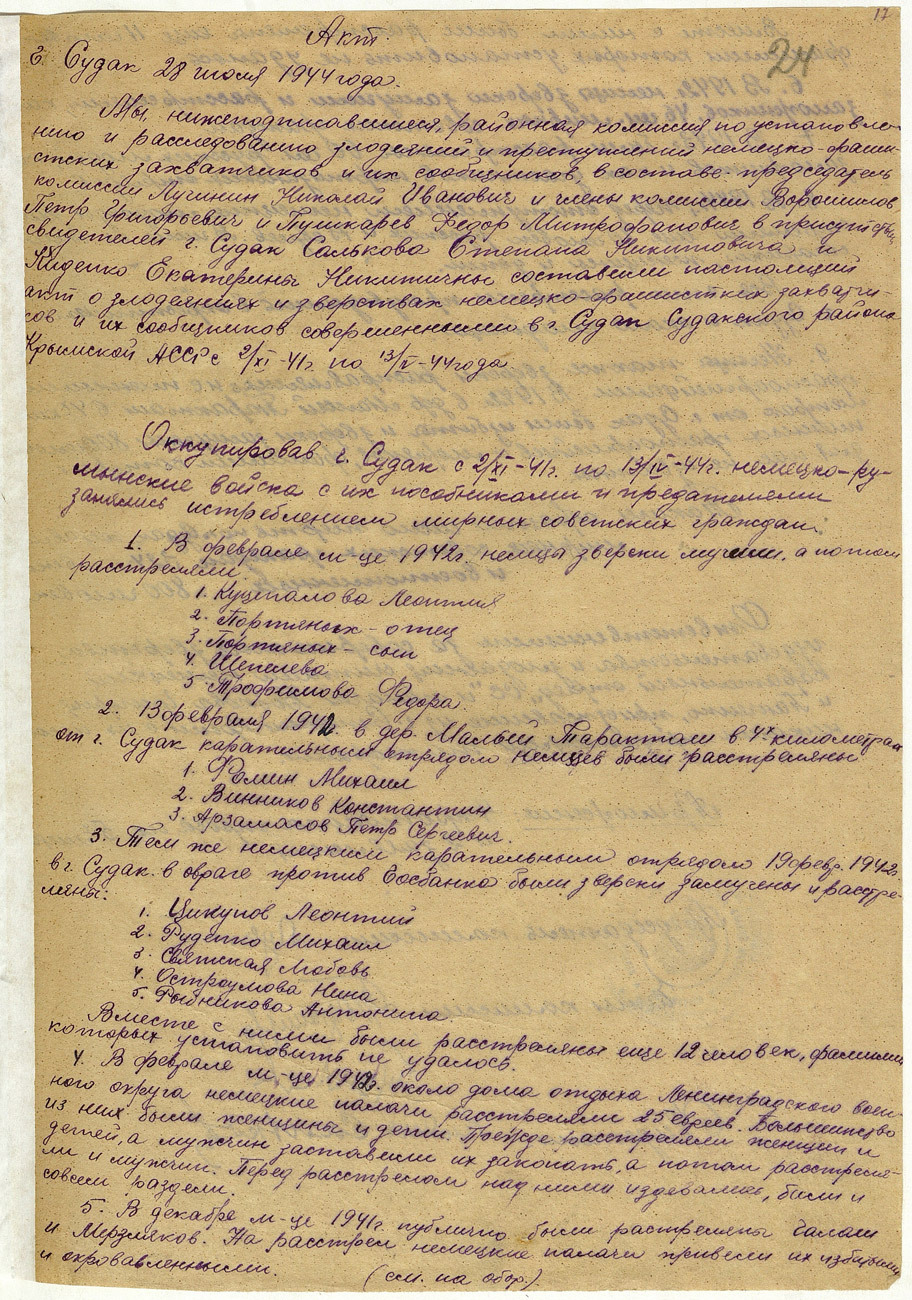 17
24
Акт.
г. Судак 28 июля 1944 года.
Мы, нижеподписавшиеся, районная комиссия по установле-
нию и расследованию злодеяний и преступлений немецко-фаши-
стских захватчиков и их сообщников, в составе председатель
комиссии Лучинин Николай Иванович и члены комиссии Ворошилов
Петр Григорьевич и Пушкарев Федор Митрофанович в присутствии
свидетелей г. Судак Салькова Степана Никитовича и
Екатерины Никитичны составили настоящий
акт о злодеяниях и зверствах немецко-фашистких захватчи-
ков и их сообщников совершенными в г. Судак Судакского района
Крымской АССР с 2/XI-41г. по 13/IV-44 года.
Оккупировав г. Судак с 2/XI-41г. по 13/IV-44г. немецко-ру-
мынские войска с их пособниками и предателями
занялись истреблением мирных советских граждан.
1. В феврале м-це 1942г. немцы зверски мучили, а потом
расстреляли.
1. Куцепалова Леонтия
2. Портяных - отец
3. Портяных - сын
4. Шепелева
5. Трофимова Федора.
2. 13 февраля 1942. в дер. Малый Таракташ в 4х километрах
от г. Судак карательным отрядом немцев были расстреляны
1. Фомин Михаил
2. Винников Константин
3. Арзамасов Петр Сергеевич.
3. Тем же немецким карательным отрядом 19 февр. 1942.
в г. Судак в овраге против Госбанка были зверски замучены и расстре-
ляны:
1. Цикупов Леонтий
2. Руденко Михаил
3. Святская Любовь
4. Остроумова Нина
5. Рыбникова Антонина
Вместе с ними были расстреляны еще 12 человек, фамилии
которых установить не удалось.
4. В феврале м-це 1942г. около дома отдыха Ленинградского воен-
ного округа немецкие палачи расстреляли 25 евреев. Большинство
из них были женщины и дети. Прежде расстреляли женщин и
детей, а мужчин заставили их закопать, а потом расстреля-
ли и мужчин. Перед расстрелом над ними издевались, били и
совсем раздели.
5. В декабре м-це 1941г. публично были растреляны
и Мерзляков. На расстрел немецкие палачи привели их избитыми
и окровавленными.
(см. на обор.).